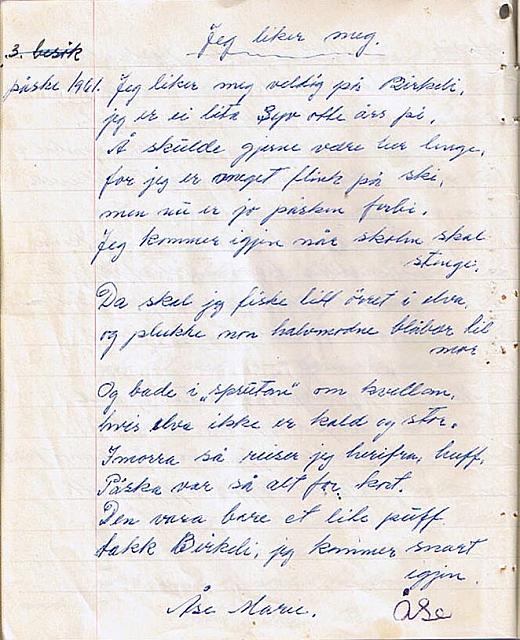 Jeg liker meg.
3. besøk
påske 1961. Jeg liker meg veldig på Birkeli,
jeg er ei lita syv otte års pi.
Å skulde gjerne være her lenge,
for jeg er meget flink på ski,
men nu er jo påsken forbi.
Jeg kommer igjen når skolen skal
stenge.
Da skal jeg fiske litt ørret i elva,
og plukke non halvmodne blåbær til
mor
Og bade i „sprutan" om kvellan,
hvis elva ikke er kald og stor.
Imorra så reiser jeg herifra, huff,
Påska var så alt for kort.
Den vara bare et lite puff
takk Birkeli, jeg kommer snart
igjen.
Åse Marie. Åse